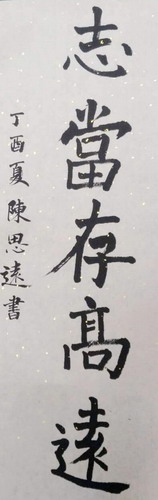 志當存高遠
丁酉夏陳思遠書